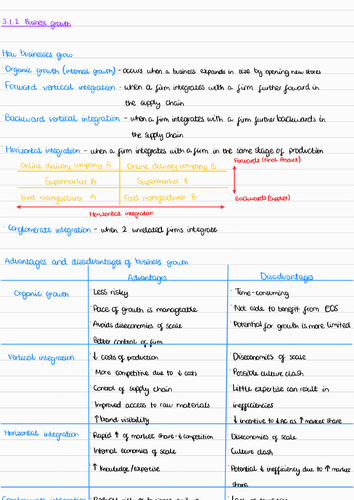 3.1.2 Business growth
How businesses grow
Organic growth (internal growth) - occurs when a business expands in size by opening new stores
Forward vertical integration - when a firm integrates with a firm further foward in
the supply chain
Backward vertical integration - when a firm integrates with a firm further backwards in
the supply chain
Horizontal integration - when a firm integrates with a firm in the same stage of production
Online delivery company A Online delivery company B Forwards (Final Product)
Supermarket A Supermarket B
Food manufacturer A Food manufacturer B Backwards (Supplier)
Horizontal integration
Conglomerate integration - when 2 unrelated firms integrate
Advantages and disadvantages of business growth
Advantages Disadvantages
Organic growth · Less risky · Time-consuming
· Pace of growth is manageable · Not able to benefit from EOS
· Avoids diseconomies of scale · Potential for growth is more limited
· Better control of firm
Vertical integration · ↓ costs of production · Diseconomies of scale
· More competitive due to ↓ costs · Possible culture clash
· Control of supply chain · Little expertise can result in
· Improved access to raw materials inefficiencies
· ↑ brand visibility · ↓ incentive to ↓AC as ↑ market share
Horizontal integration · Rapid ↑ of market share - ↓ competition · Diseconomies of scale
· Internal economies of scale · Culture clash
· ↑ knowledge / expertise · Potential ↓ inefficiency due to ↑ market
share